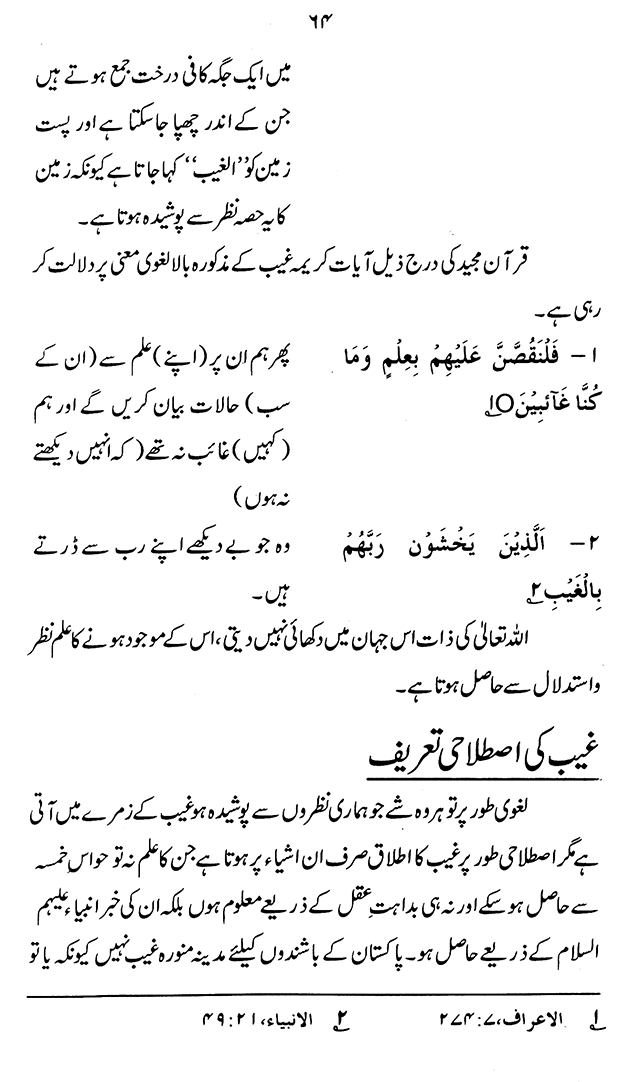 ۶۴
میں ایک جگہ کافی درخت جمع ہوتے ہیں
جن کے اندر چھپا جا سکتا ہے اور پست
زمین کو ’’الغیب‘‘ کہا جاتا ہے کیونکہ زمین
کا یہ حصہ نظر سے پوشیدہ ہوتا ہے۔
قرآن مجید کی درج ذیل آیات کریمہ غیب کے مذکورہ بالا لغوی معنی پر دلالت کر
رہی ہے۔
۱ – فَلَنَقُصَّنَّ عَلَيْهِمْ بِعِلْمٍ وَمَا
كُنَّا غَآئِبِيْنَ۝۱
پھر ہم ان پر (اپنے) علم سے (ان کے
سب) حالات بیان کریں گے اور ہم
(کہیں) غائب نہ تھے (کہ انہیں دیکھتے
نہ ہوں)
۲ – اَلَّذِيْنَ يَخْشَوْن رَبَّهُمْ
بِالْغَيْبِ۲
وہ جو بے دیکھے اپنے رب سے ڈرتے
ہیں۔
اللہ تعالیٰ کی ذات اس جہان میں دکھائی نہیں دیتی، اس کے موجود ہونے کا علم نظر
و استدلال سے حاصل ہوتا ہے۔
غیب کی اصطلاحی تعریف
لغوی طور پر تو ہر وہ شے جو ہماری نظروں سے پوشیدہ ہو غیب کے زمرے میں آتی
ہے مگر اصطلاحی طور پر غیب کا اطلاق صرف ان اشیاء پر ہوتا ہے جن کا علم نہ تو حواسِ خمسہ
سے حاصل ہو سکے اور نہ ہی بداہتِ عقل کے ذریعے معلوم ہوں بلکہ ان کی خبر انبیاء علیہم
السلام کے ذریعے حاصل ہو۔ پاکستان کے باشندوں کیلئے مدینہ منورہ غیب نہیں کیونکہ یا تو
۱ الاعراف، ۷:۲۷۴
۲ الانبیاء، ۲۱:۴۹